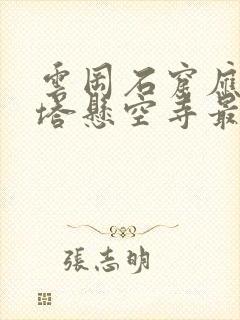 雲岡石窟應
塔懸空寺最
張志明